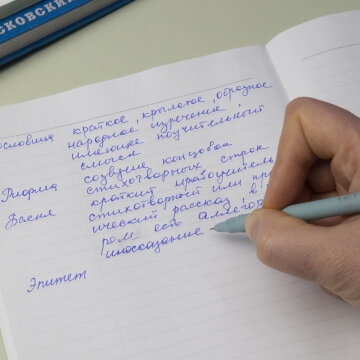 СКОВСКИЙ
ословица краткое, крылатое, образное
народное изречение,
имеющее поучительный
смысл
Рифма созвучие концовок
стихотворных строк
Басня краткий нравоучитель
стихотворный или про
ический рассказ в
ром есть аллегор
иносказание
Эпитет